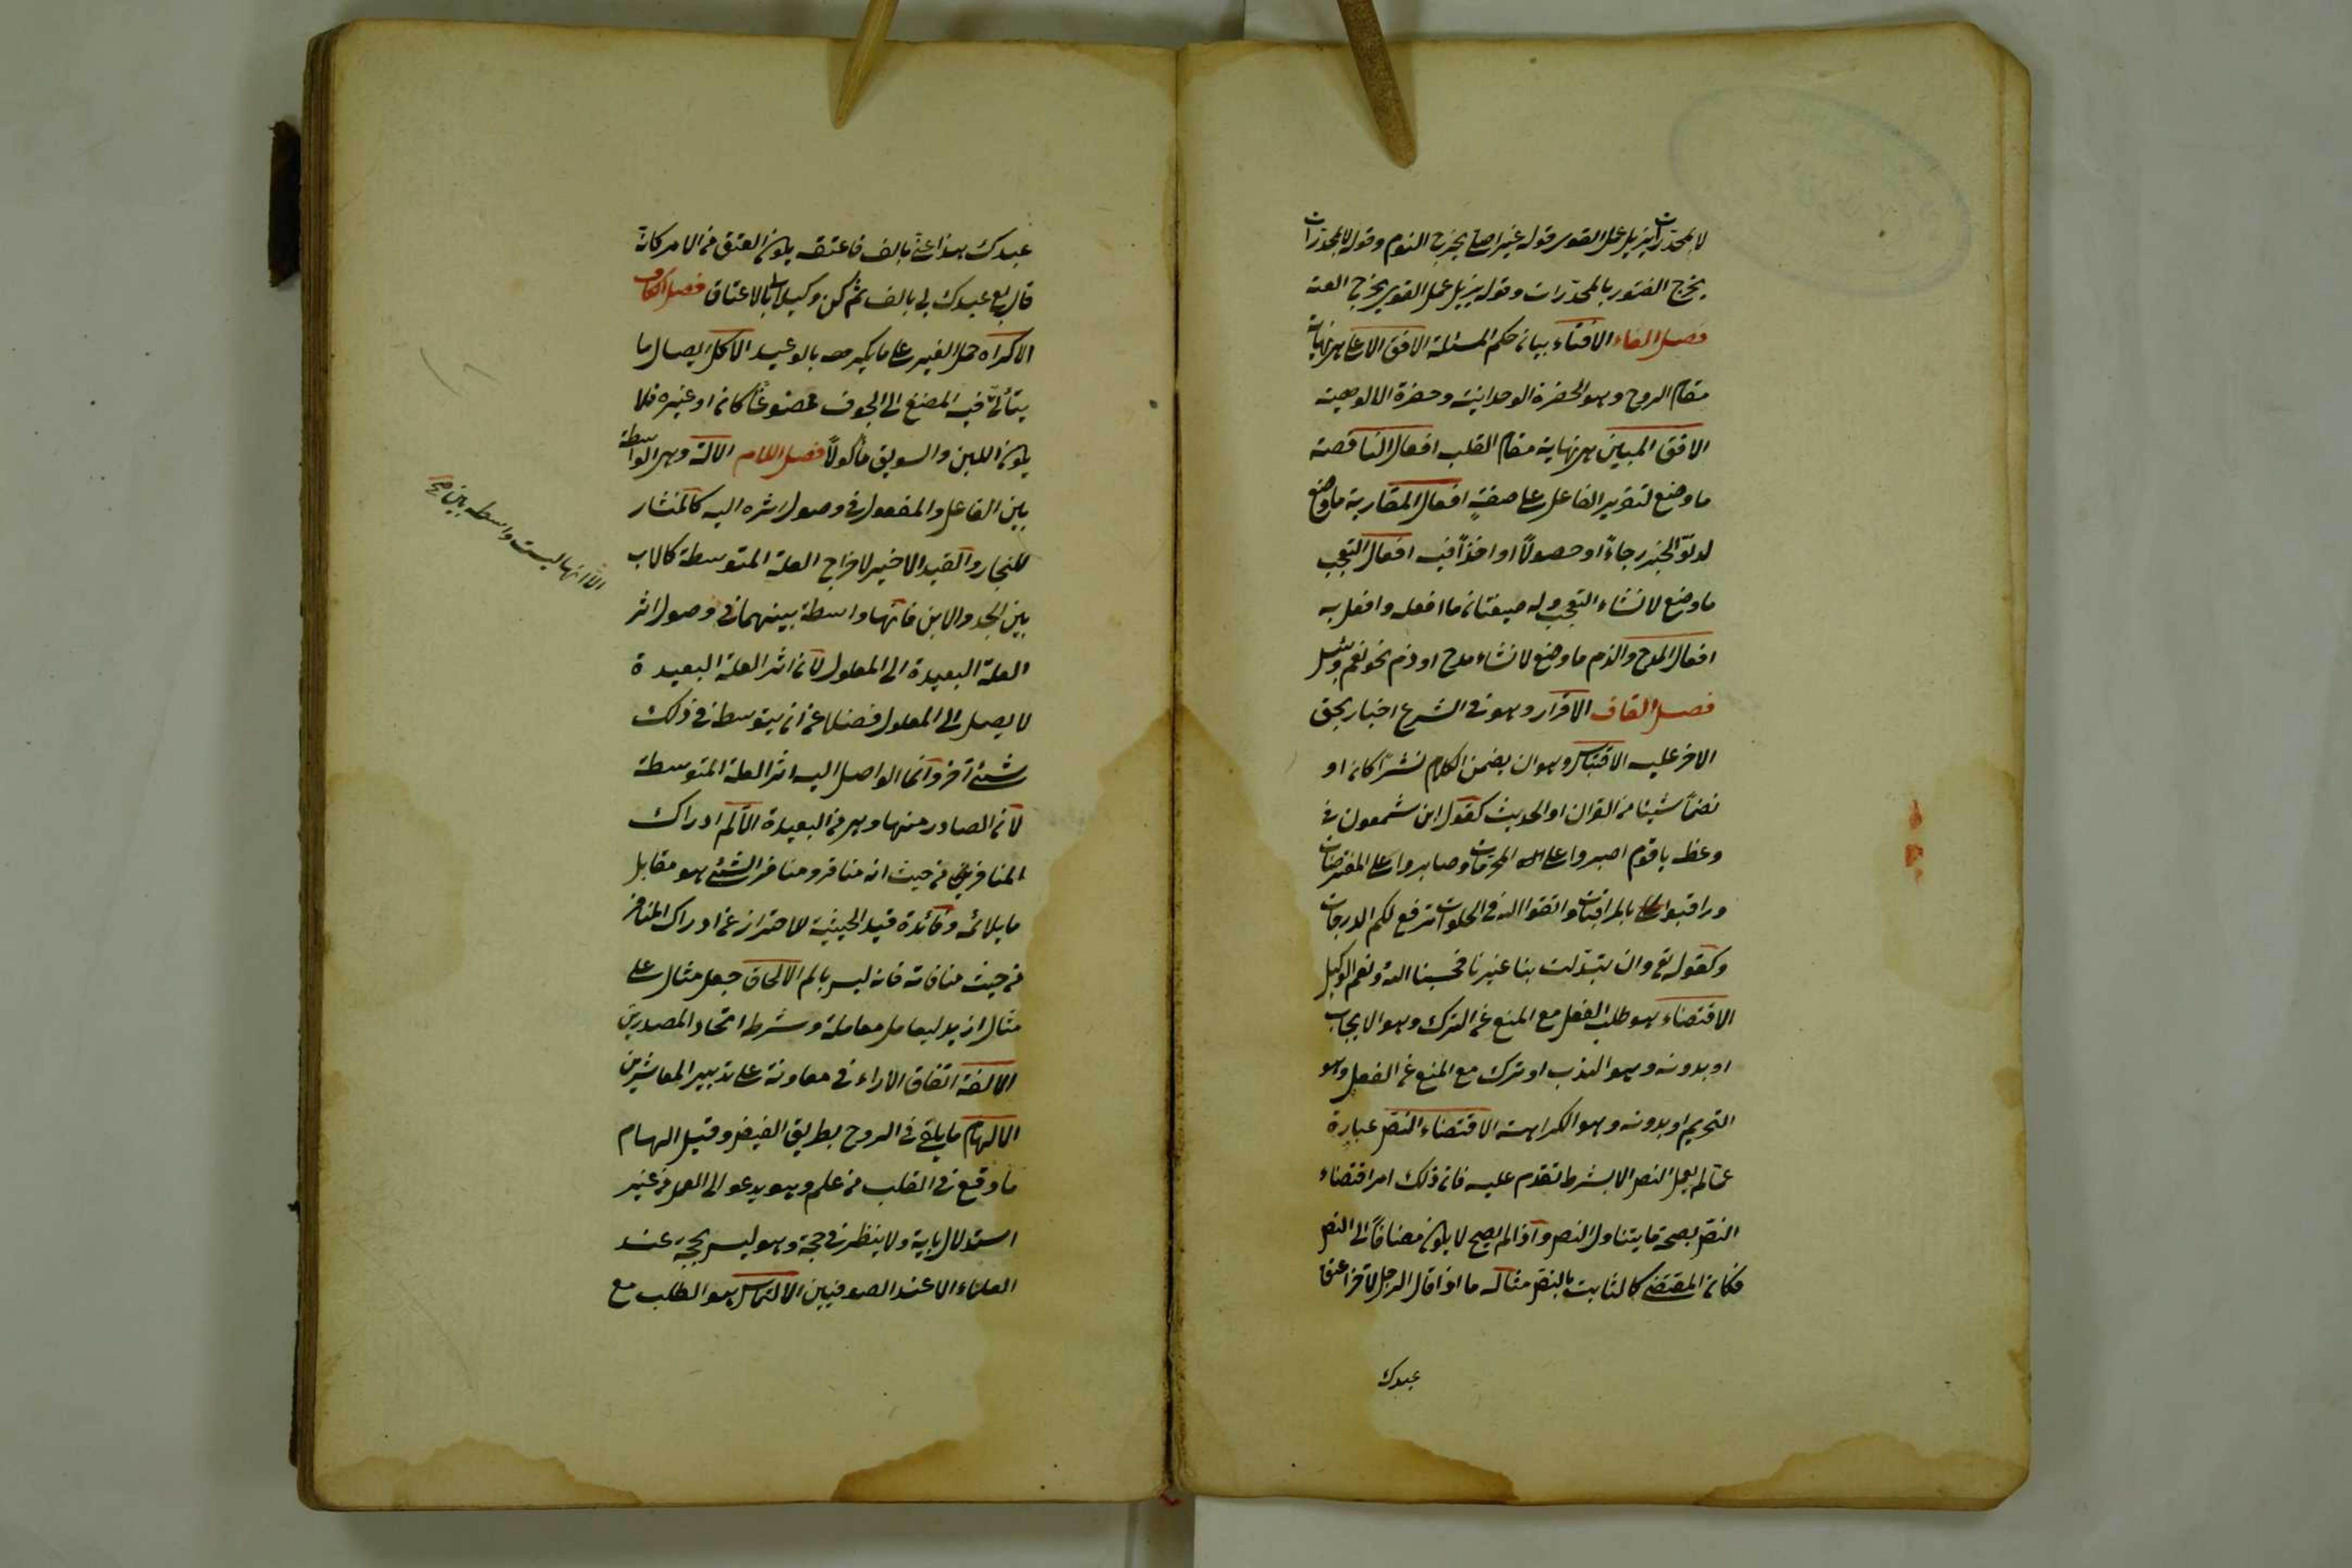 لا بمخدرات يزيل عمل القوى قوله غير اصلي يخرج النوم وقوله لا بمخدرات
يخرج الفتور بالمخدرات وقوله يزيل عمل القوى يخرج العته
فصل الفاء الافتاء بيان حكم المسئلة الافق الاعلى هي نهاية
مقام الروح وهو الحضرة الوحدانية وحضرة الالوهية
الافق المبين هي نهاية مقام القلب افعال الناقصة
ما وضع لتقرير الفاعل على صفة افعال المقاربة ما وضع
لدنو الخبر رجاءً او حصولاً او اخذاً فيه افعال التعجب
ما وضع لانشاء التعجب وله صيغتان ما افعله وافعل به
افعال المدح والذم ما وضع لانشاء مدح او ذم نحو نعم وبئس
فصل القاف الاقرار وهو في الشرع اخبار بحق
الاخر عليه الاقتباس وهو ان يضمن الكلام نشراً كان او
نضماً شيئا من القران او الحديث كقول ابن شمعون في
وعظه يا قوم اصبروا على المحرمات وصابروا على المفترضات
وراقبوا بالمراقبات واتقوا الله في الخلوات ترفع لكم الدرجات
وكقوله تع وان تبدلت بنا غيرنا فحسبنا الله ونعم الوكيل
الاقتضاء هو طلب الفعل مع المنع عن الترك وهو الايجاب
او بدونه وهو الندب او ترك مع المنع عن الفعل وهو
التحريم او بدونه وهو الكراهة الاقتضاء النص عبارة
عما لم يعمل النص الا بشرط تقدم عليه فان ذلك امر اقتضاء
النص بصحة ما يتناول النص واذا لم يصح لا يكون مضافاً الى النص
فكان المقتضى كالثابت بالنص مثاله ما اذا قال الرجل لاخر اعتق
عبدك
عبدك هذا عني بالف فاعتقه يكون العتق من الامر كانه
قال بع عبدك لي بالف ثم كن وكيلا بالاعتاق فصل الكاف
الاكراه حمل الغير على ما يكرهه بالوعيد الاكل ايصال ما
يتأتى فيه المضغ الى الجوف ممضوغاً كان او غيره فلا
يكون اللبن والسويق مأكولاً فصل اللام الالة وهي الواسطة
بين الفاعل والمفعول في وصول اثره اليه كالمنشار
للنجار والقيد الاخير لاخراج العلة المتوسطة كالاب
بين الجد والابن فانها واسطة بينهما في وصول اثر
العلة البعيدة الى المعلول لان اثر العلة البعيدة
لا يصل الى المعلول فضلا عن ان يتوسط في ذلك
شئ آخر وانما الواصل اليه اثر العلة المتوسطة
لانه الصادر منها وهي من البعيدة الالم ادراك
المنافر من حيث انه منافر ومنافر الشئ هو مقابل
ما يلائمه وفائدة قيد الحيثية للاحتراز عن ادراك المنافر
من حيث منافاته فانه ليس بالم الالحاق جعل مثال على
مثال ازيد ليعامل معاملة وشرط اتحاد المصدرين
الالفة اتفاق الآراء في معاونة على تدبير المعاشرين
الالهام ما يلقى في الروح بطريق الفيض وقيل الهام
ما وقع في القلب من علم وهو يدعو الى العمل من غير
استدلال باية ولا ينظر في حجة وهو ليس بحجة عند
العلماء الا عند الصوفيين الالتماس هو الطلب مع
الا انها ليست واسطة بين صح